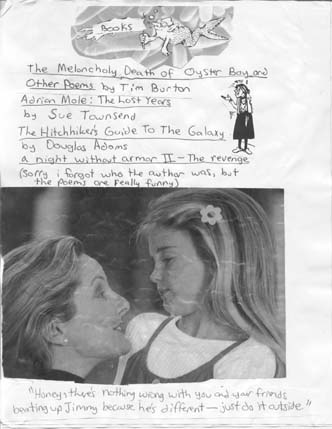 Books
The Meloncholy Death of Oyster Boy and
Other Poems by Tim Burton
Adrian Mole: The Lost Years
by Sue Townsend
The Hitchhiker's Guide To The Galaxy
by Douglas Adams
a night without armor II - The revenge
(Sorry i forgot who the author was, but
the poems are really funny)
"Honey, there's nothing wrong with you and your friends
beating up Jimmy because he's different — just do it outside"